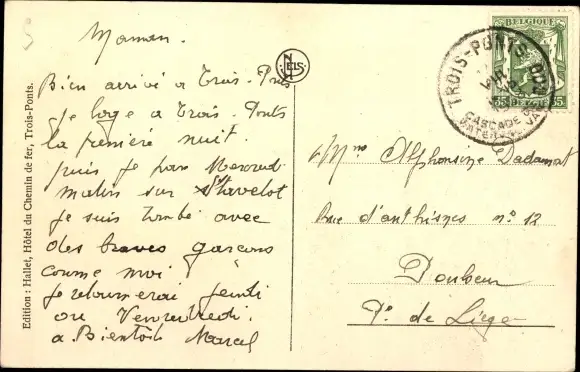 Maman.
Bien arrivé a Trois-Ponts
je loge a Trois-Ponts
la première nuit
puis je pars Mercredi
matin sur Stavelot
je suis tombé avec
des braves garçons
comme moi
je retournerai jeudi
ou Vendredi.
a Bientôt Marcel
Edition : Hallet, Hôtel du Chemin de fer, Trois-Ponts.
NELS
BELGIQUE
35 BELGIE 35
TROIS-PONTS
CASCADE
WATERVAL
Mme Alphonsine Dadamat
Rue d'anthisnes n° 12
Ponheur
Pce de Liège